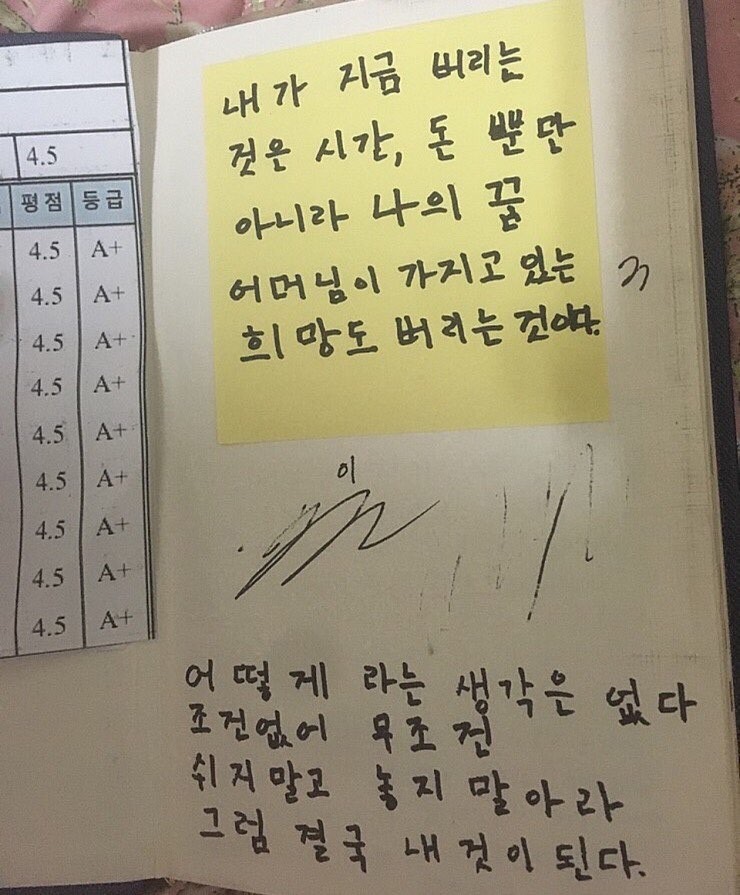 4.5
평점 등급
4.5 A+
4.5 A+
4.5 A+
4.5 A+
4.5 A+
4.5 A+
4.5 A+
4.5 A+
4.5 A+
내가 지금 버리는
것은 시간, 돈 뿐만
아니라 나의 꿈
어머님이 가지고 있는
희망도 버리는 것이다.
이
어떻게 라는 생각은 없다
조건없어 무조건
쉬지말고 놓지 말아라
그럼 결국 내 것이 된다.